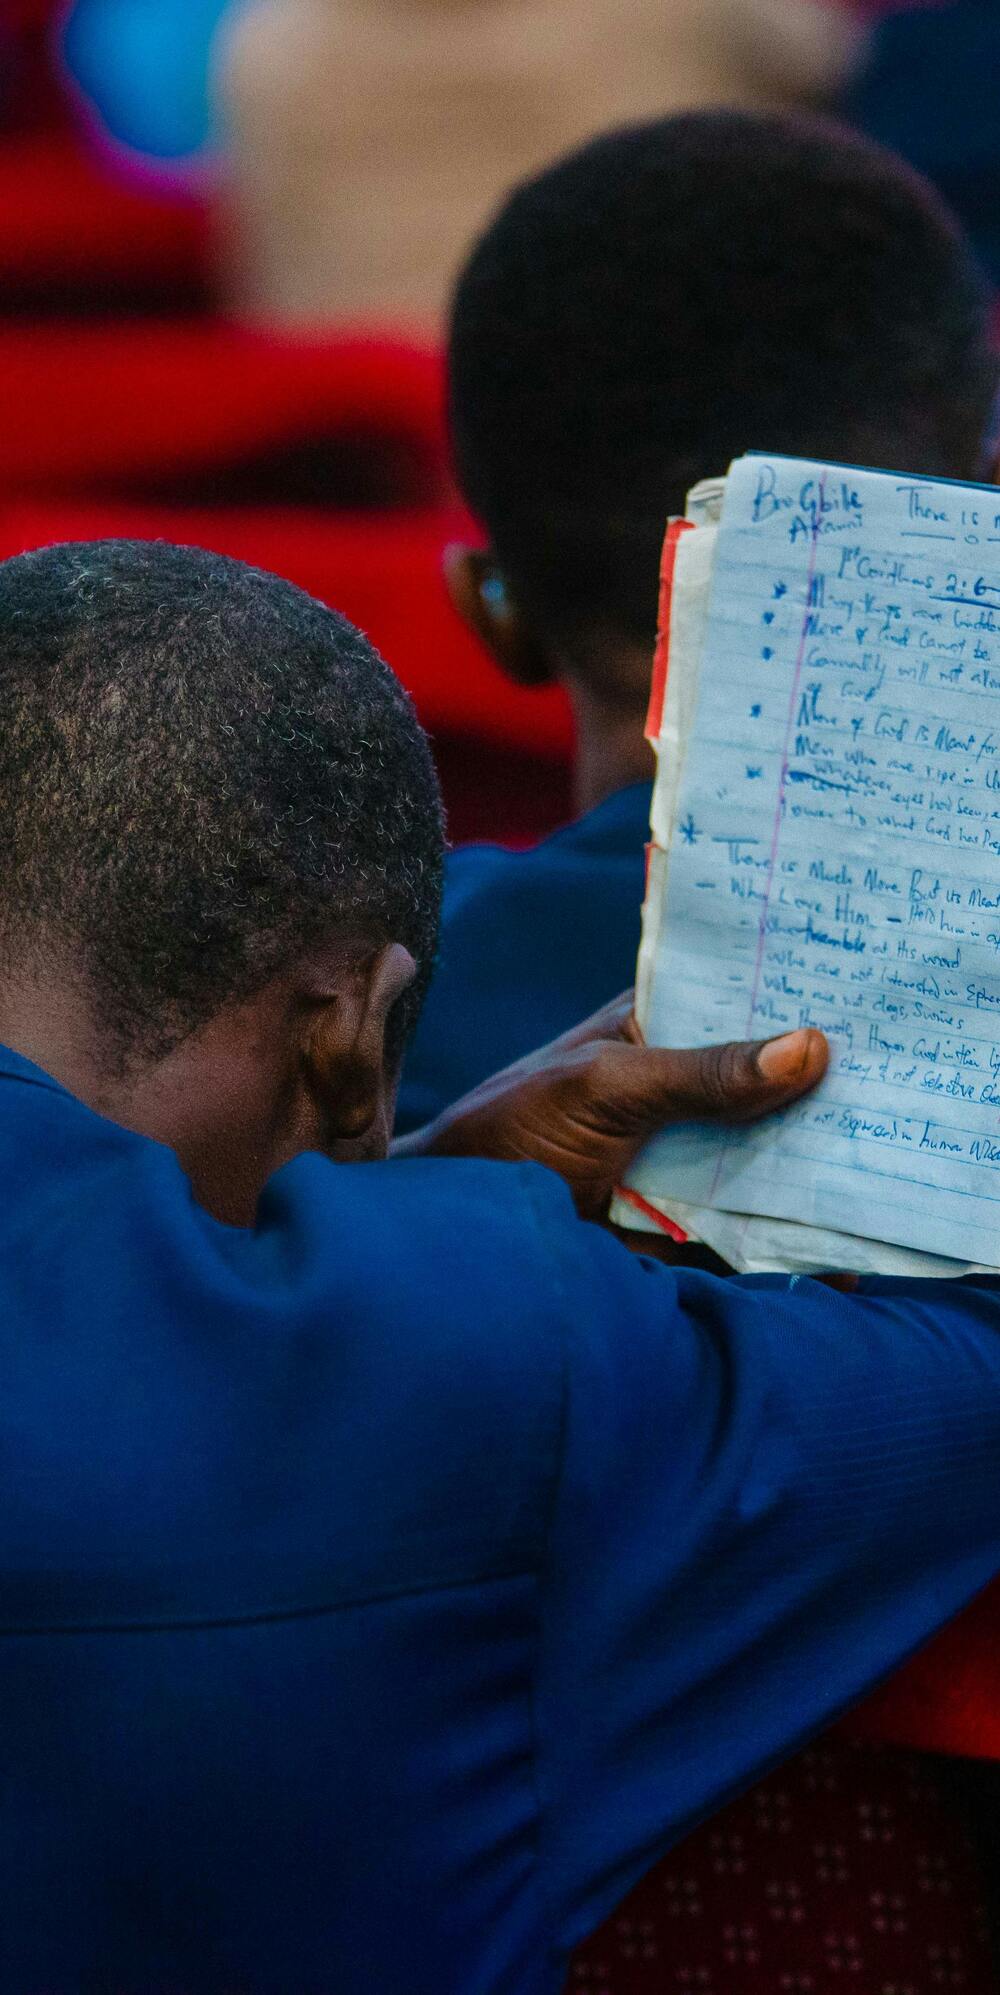 Bro Gbile There is
Akanni
1st Corinthians 2:6-
* Many things are hidde
* More of God cannot be
* Carnality will not allo
of God
* More of God is Meant for
Men who are ripe in Un
* whatever eyes had seen, e
lower to what God has Prep
* There is Much More But its Mean
- Who Love Him - Hold him in
- Who tremble at His word
- who are not interested in
- Who are not dogs, Swines
- Who Honor God in their
obey & not Selective
is not Expressed in human Wis